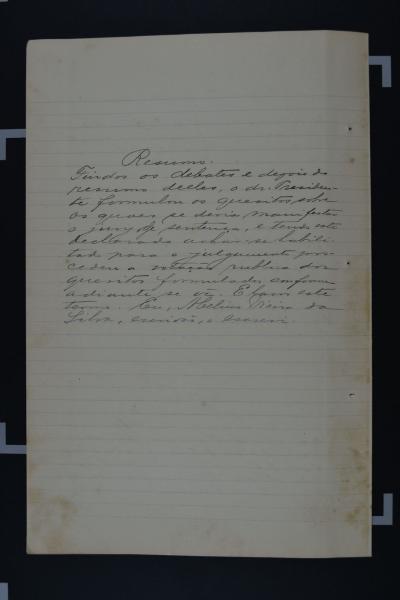 Resumo.
Findos os debates e depois do
resumo delles, o dr. Presiden-
te formulou os quesitos, sobre
os quaes se devia manifestar
o jury de sentença, e tendo este
declarado achar-se habili-
tado para o julgamento pro-
cedeu a votação publica dos
quesitos formulados, conforme
adiante se vê. E lavro este
termo. Eu, Vieira da
Silva, escrivão, o escrevi.